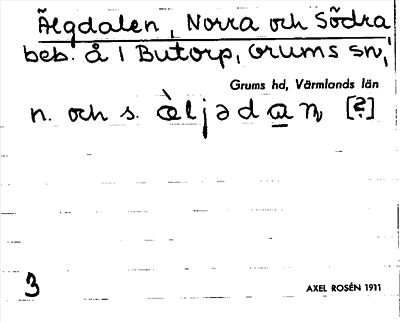 Älgdalen, Norra och Södra
beb. å 1 Butorp, Grums sn,
Grums hd, Värmlands län
n. och s. æ̀ljədan, [?]
3
AXEL ROSÉN 1911